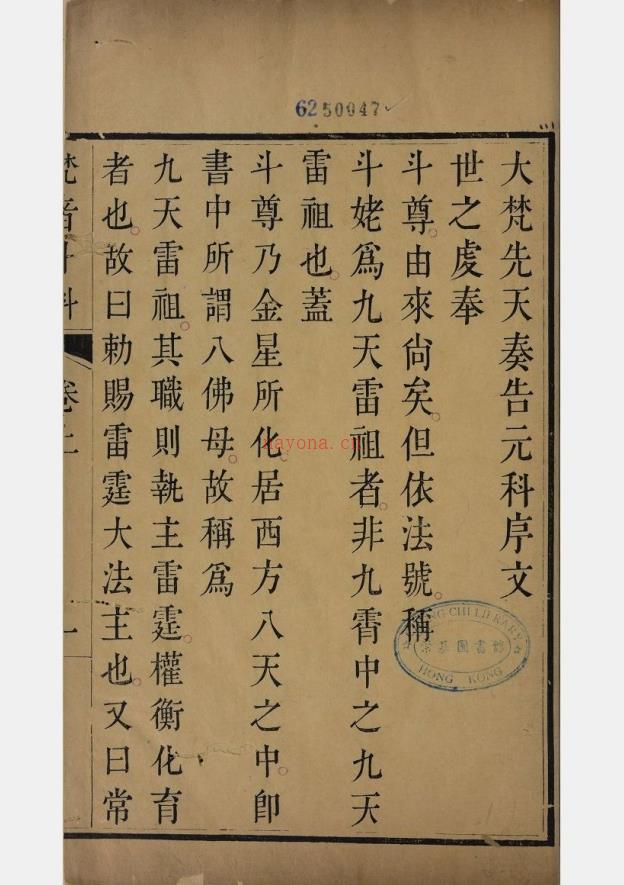 6250047
大梵先天奏告元科序文
世之虔奉
斗尊由來尙矣但依法號稱
斗姥爲九天雷祖者非九霄中之九天
雷祖也葢
斗尊乃金星所化居西方八天之中卽
書中所謂八佛母故稱爲
九天雷祖其職則執主雷霆權衡化育
者也故曰勅賜雷霆大法主也又曰常
梵音斗科
卷上
一
CHI LIBRARY
崇基圖書館
HONG KONG